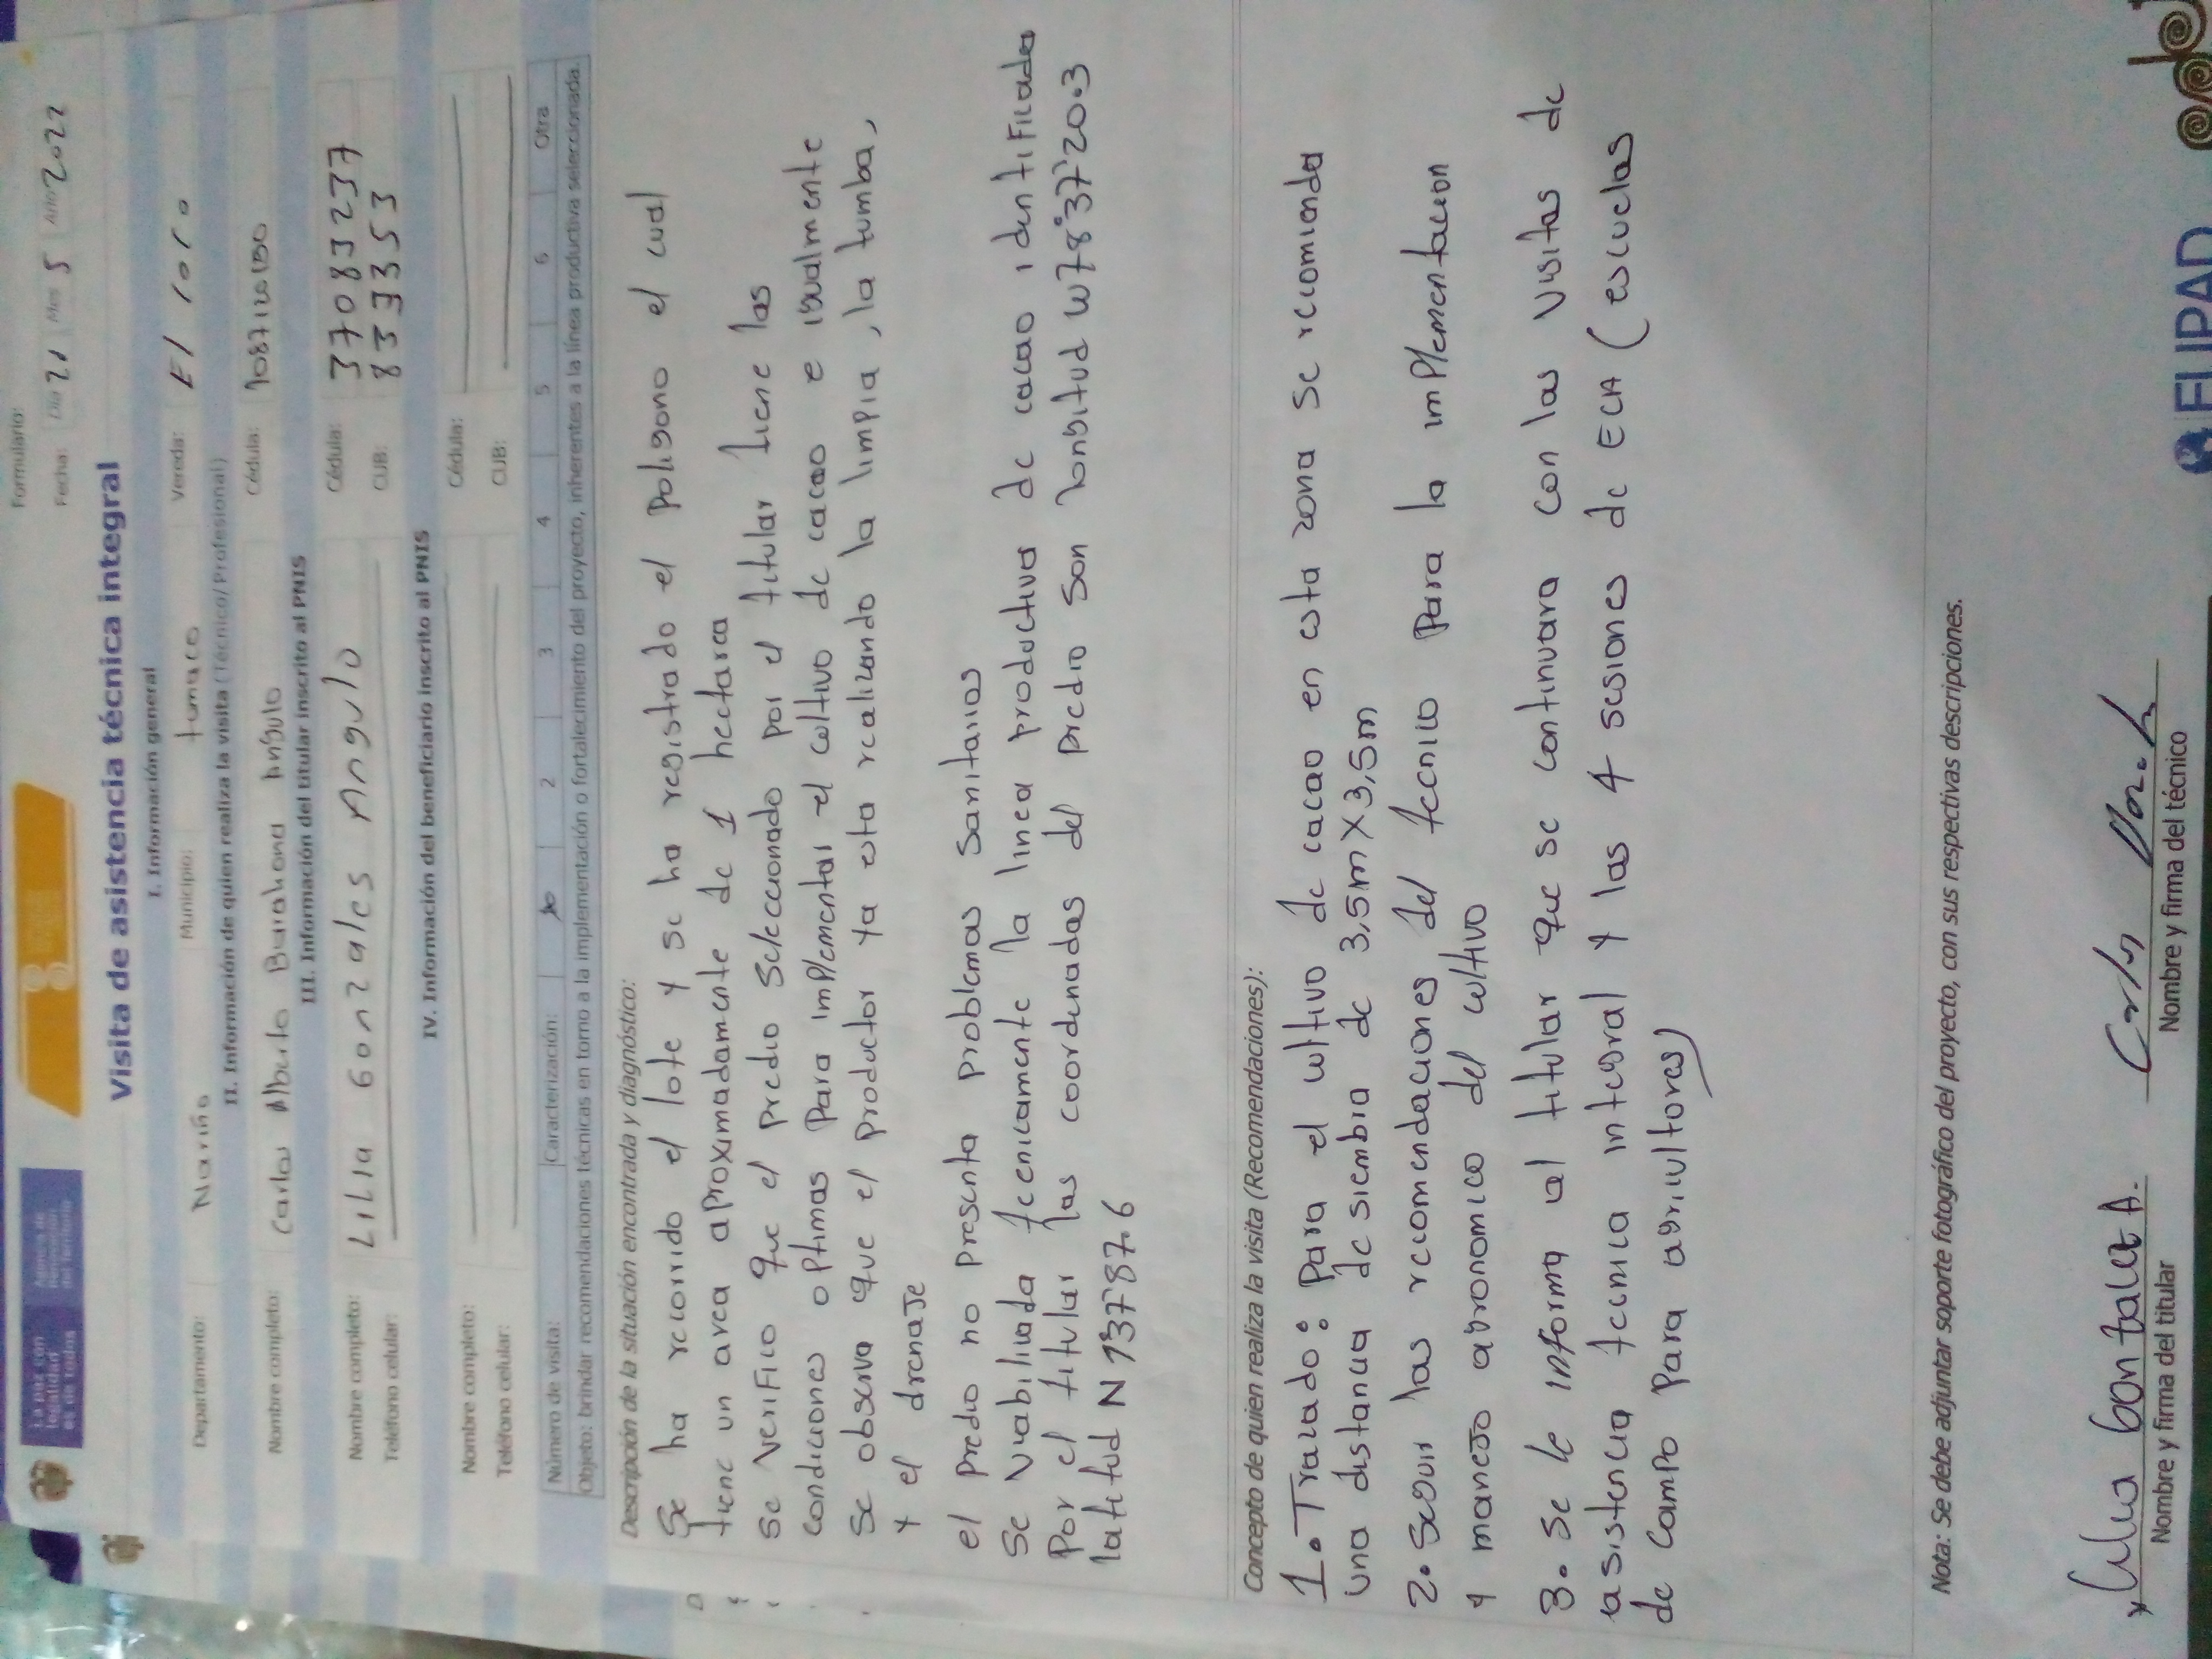 Formulario:
Fecha: Día 21 Mes 5 Año 2022
La paz con legalidad es de todos
Agencia de Renovación del Territorio
Visita de asistencia técnica integral
I. Información general
Departamento: Nariño Municipio: tumaco Vereda: El
II. Información de quien realiza la visita (Técnico/Profesional)
Nombre completo: Carlos Alberto Barahona Angulo Cédula:
III. Información del titular inscrito al PNIS
Nombre completo: Lilia Gonzales Angulo Cédula: 37083237
Teléfono celular: CUB: 833353
IV. Información del beneficiario inscrito al PNIS
Nombre completo: Cédula:
Teléfono celular: CUB:
Número de visita: Caracterización: 2 3 4 5 6 Otra
Objeto: brindar recomendaciones técnicas en torno a la implementación o fortalecimiento del proyecto, inherentes a la línea productiva seleccionada.
Descripción de la situación encontrada y diagnóstico:
Se ha recorrido el lote y se ha registrado el poligono el cual
tiene un area aproximadamente de 1 hectarea
se verifico que el predio seleccionado por el titular tiene las
condiciones optimas para implementar el cultivo de cacao e igualmente
se observa que el productor ya esta realizando la limpia, la tumba,
y el drenaje
el predio no presenta problemas sanitarios
Se viabiliada tecnicamente la linea productiva de cacao identificada
Por el titular las coordenadas del predio son longitud W78°37'20.3
latitud N 1°37'87.6
Concepto de quien realiza la visita (Recomendaciones):
1. Trazado: Para el cultivo de cacao en esta zona se recomienda
una distancia de siembra de 3,5m X 3,5m
2. Seguir las recomendaciones del tecnico Para la implementacion
y manejo agronomico del cultivo
3. Se le informa al titular que se continuara con las visitas de
asistencia tecnica integral y las 4 sesiones de ECA (escuelas
de campo Para agricultores)
Nota: Se debe adjuntar soporte fotográfico del proyecto, con sus respectivas descripciones.
Nombre y firma del titular
Nombre y firma del técnico
FUPAD